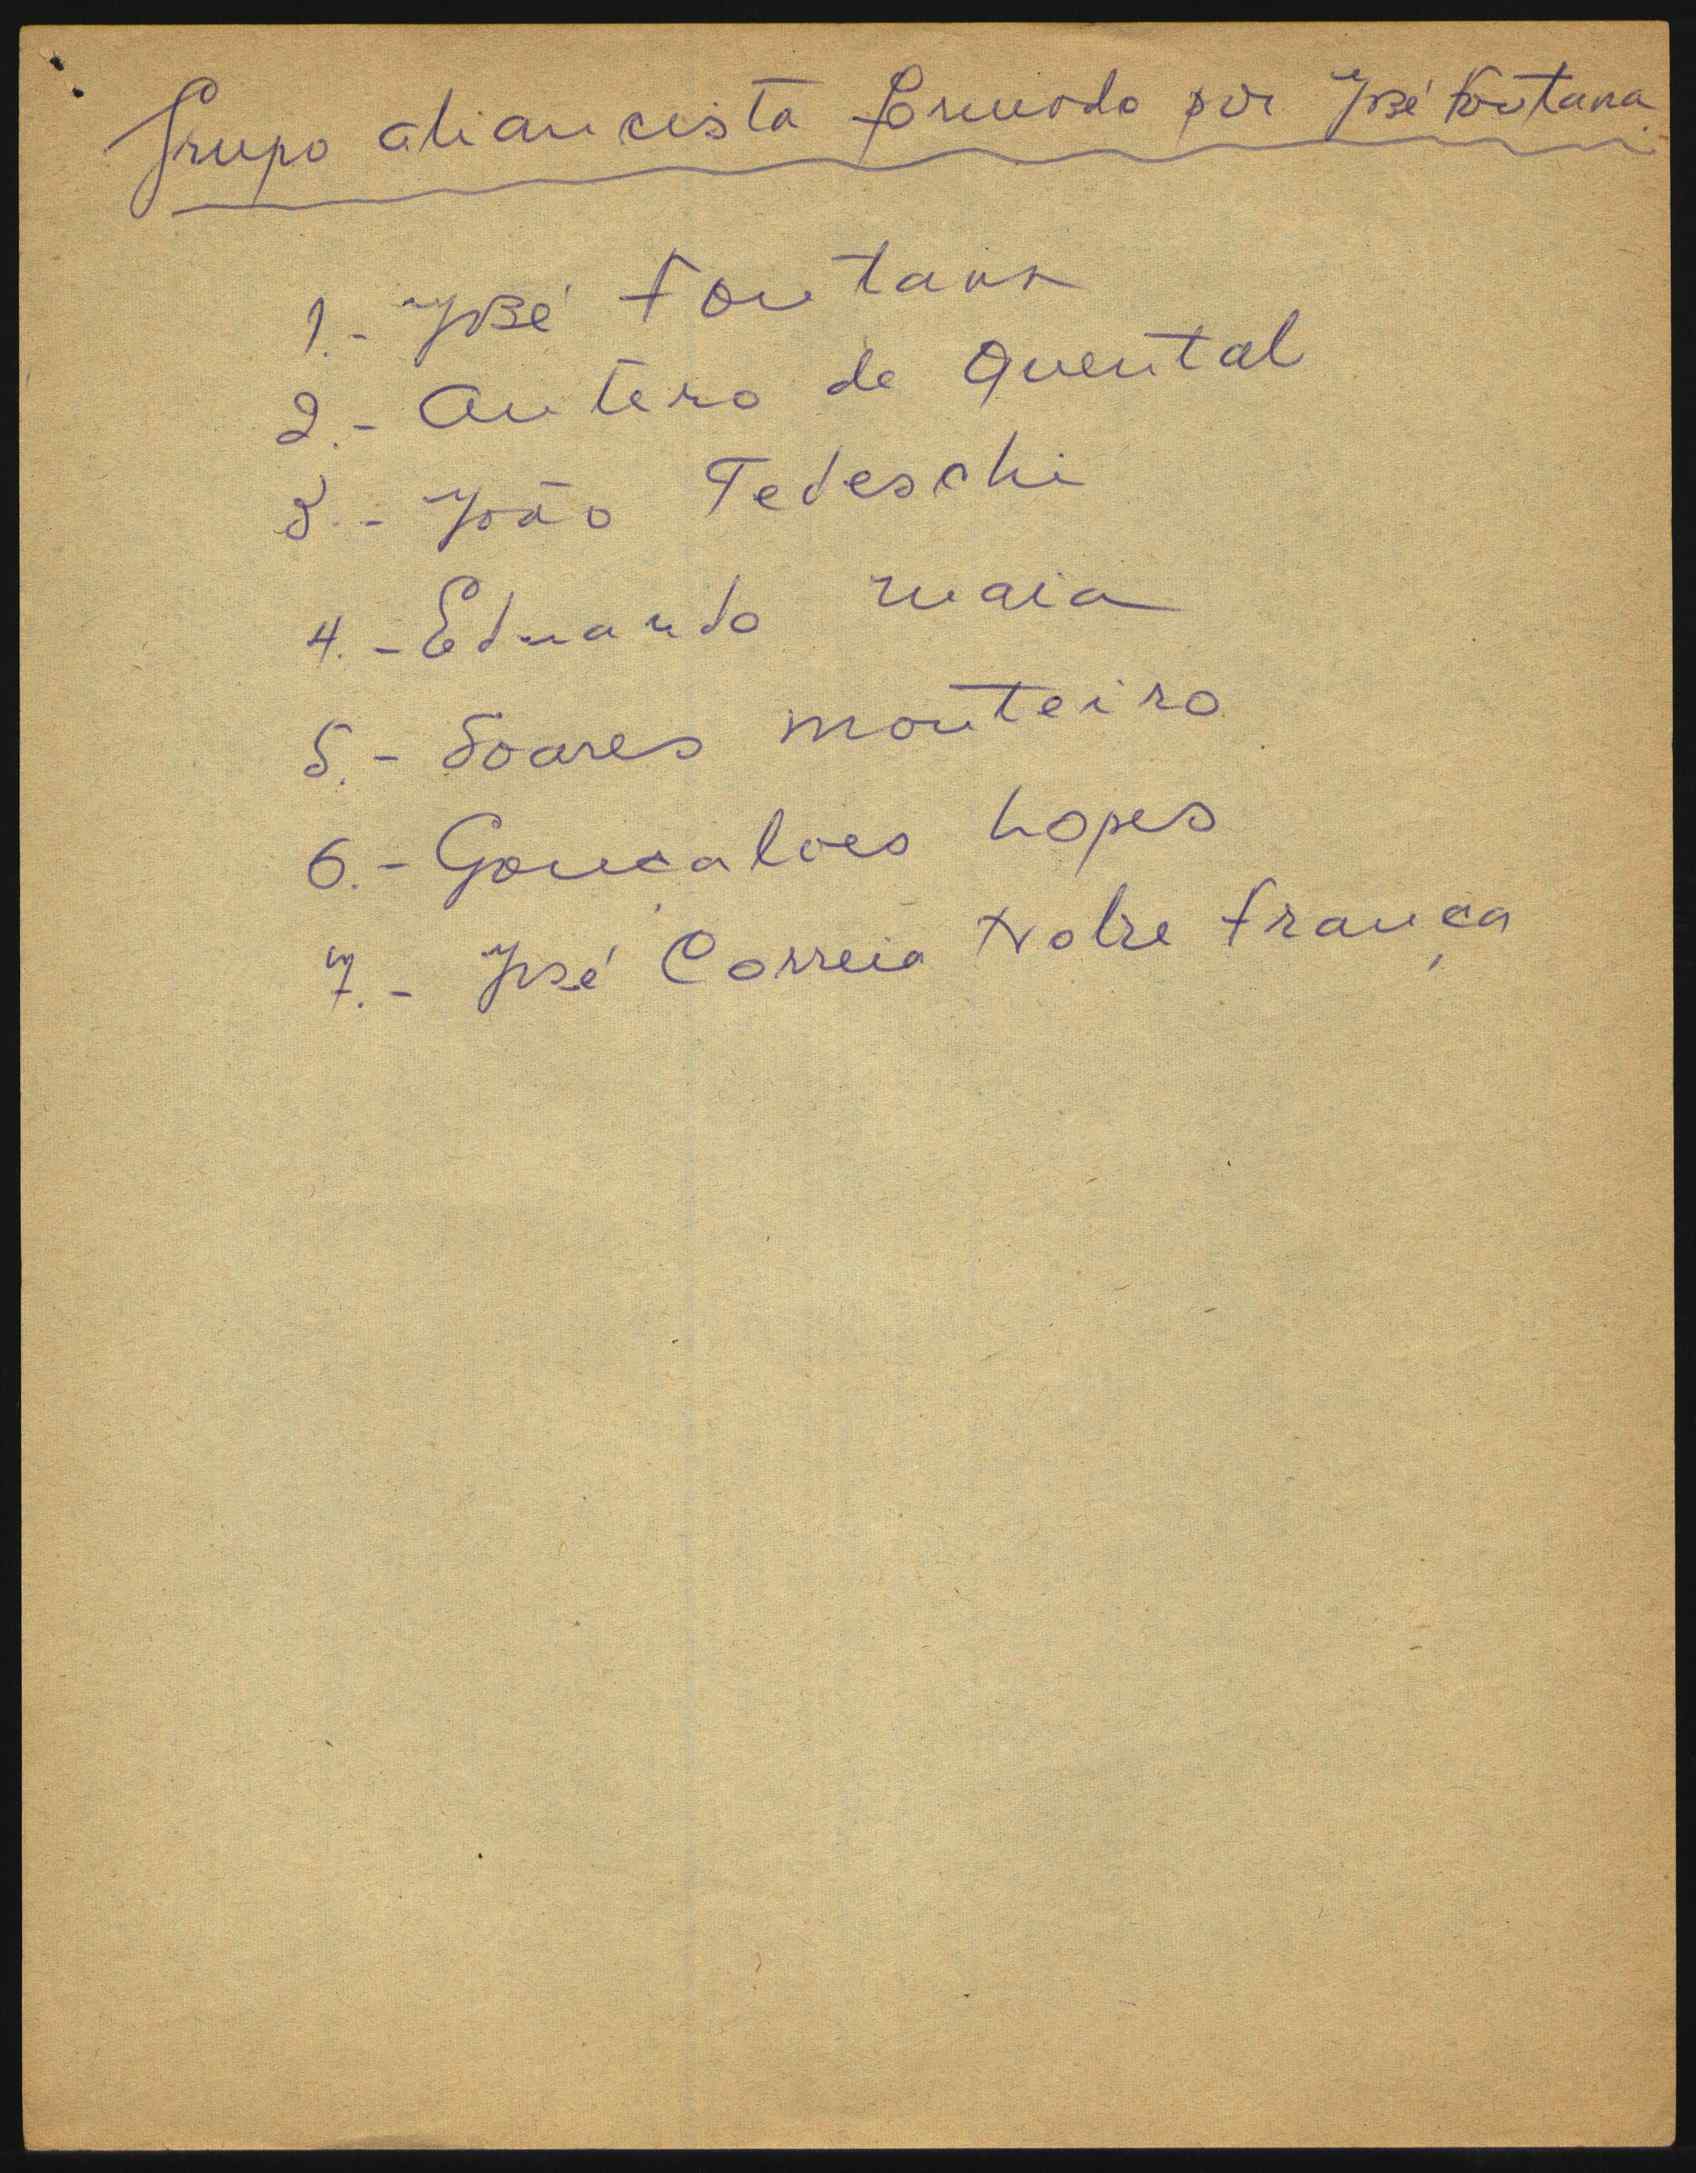 Grupo aliancista formado por José Fontana
1.- José Fontana
2.- Antero de Quental
3.- João Tedeschi
4.- Eduardo Maia
5.- Soares Monteiro
6.- Gonçalves Lopes
7.- José Correia Nobre França